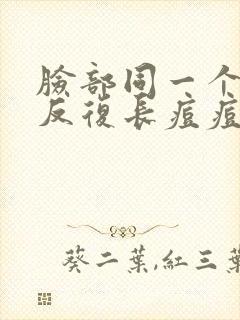 臉部同一个
反復長痘痘
葵二葉,紅三葉